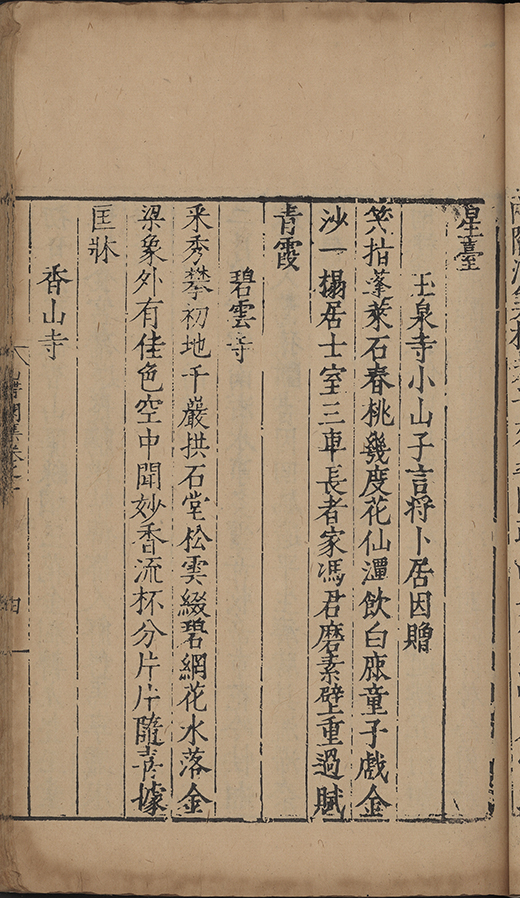 星臺
玉泉寺小山子言將卜居因贈
笑指蓬萊石春桃幾度花仙潭飲白鹿童子戲金
沙一榻居士室三車長者家馮君磨素壁重過賦
青霞
碧雲寺
采秀攀初地千巖拱石堂松雲綴碧網花水落金
梁象外有佳色空中聞妙香流杯分片片隨意據
匡牀
香山寺